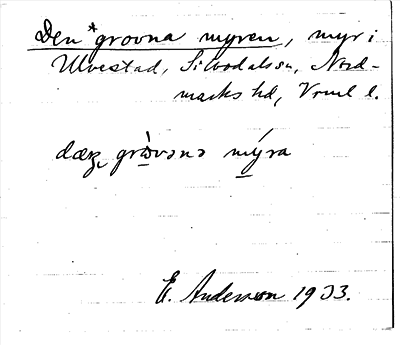 Den *grovna myren, myr i
Ulvestad, Silbodals sn, Nord-
marks hd, Vrml l.
dæꞥ grὼvənə mýra
E. Andersson 1933.